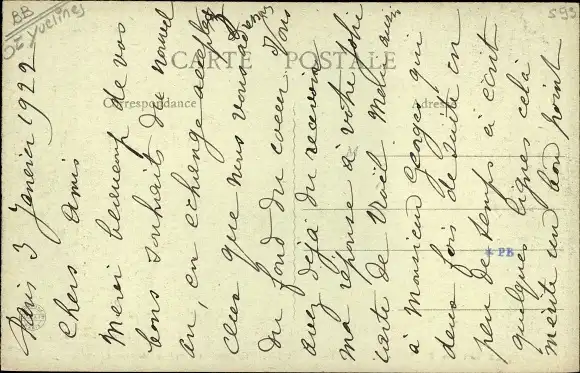 BB
Dt Yvelines
595
CARTE POSTALE
Correspondance
Adresse
* PB
Paris 3 Janvier 1922
Chers Amis
Merci beaucoup de vos
bons souhaits du nouvel
an, en échange acceptez
ceux que nous vous
du fond du coeur. Vous
avez déja du recevoir
ma réponse à votre jolie
carte de Noël. Mais
à Monsieur Edgar, qui
deux fois de suite en
peu de temps à écrit
quelques lignes cela
mérite un bon point